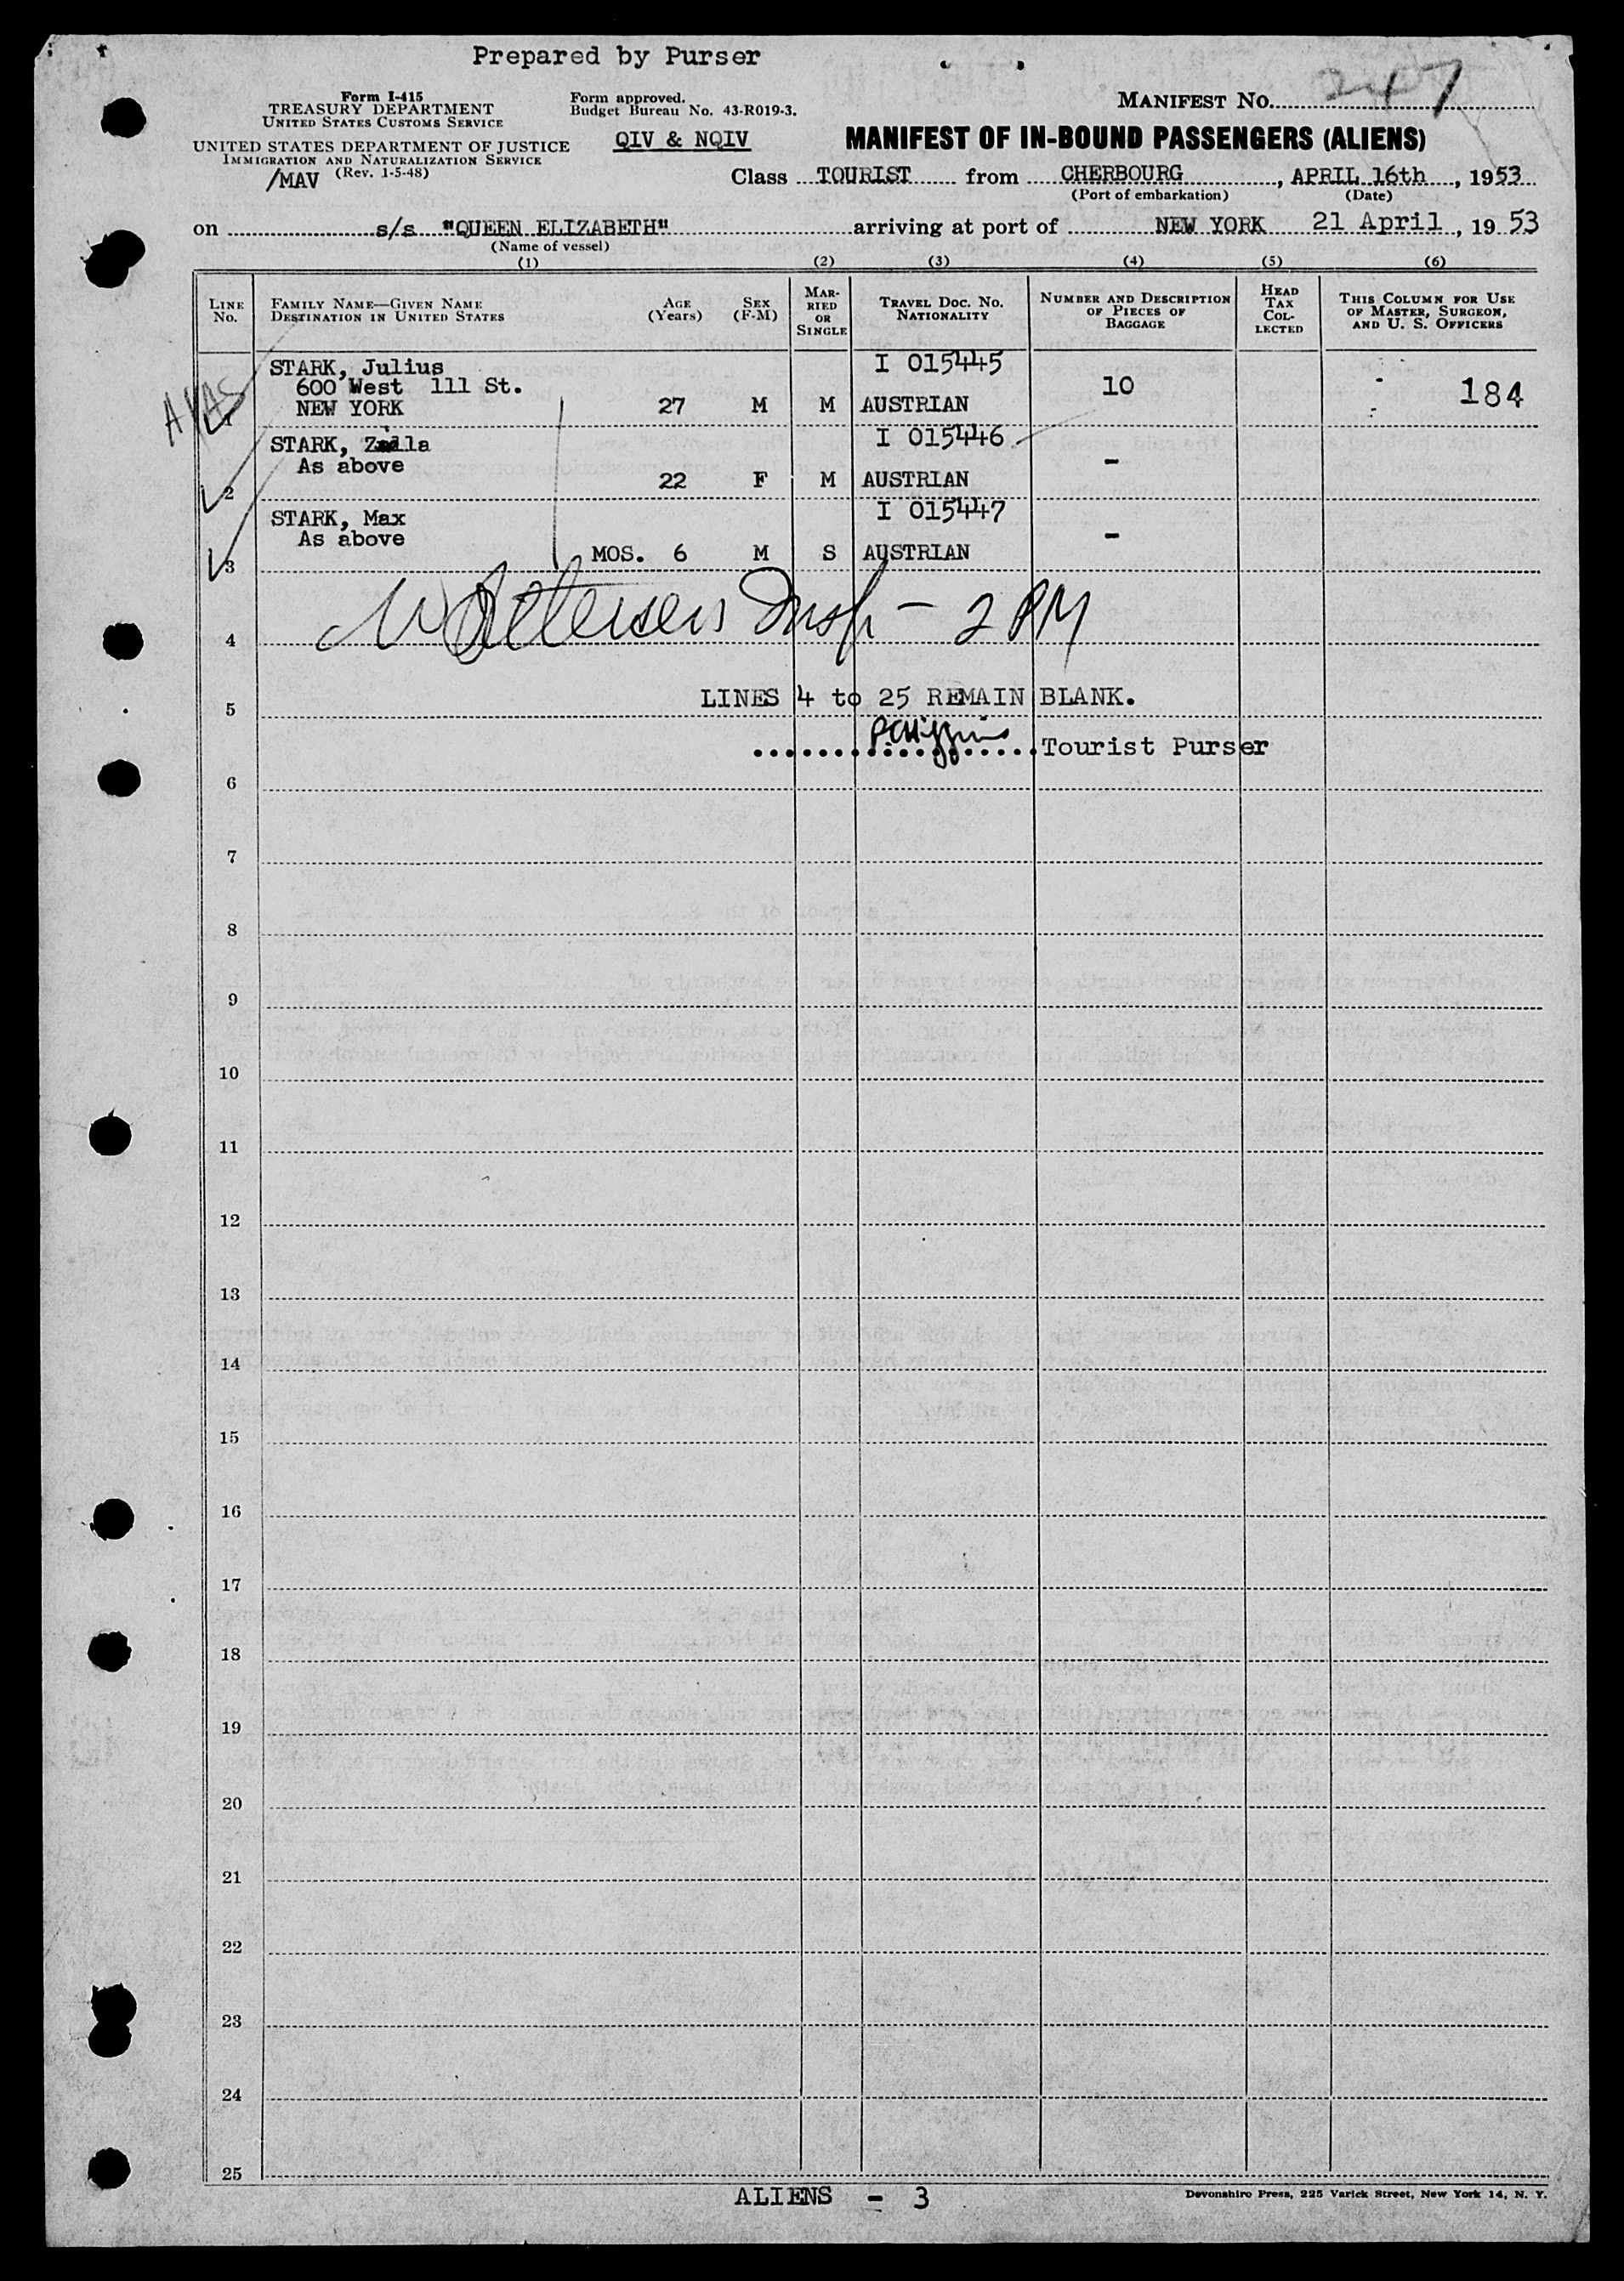 Prepared by Purser
Form I-415
TREASURY DEPARTMENT
UNITED STATES CUSTOMS SERVICE
UNITED STATES DEPARTMENT OF JUSTICE
IMMIGRATION AND NATURALIZATION SERVICE
/MAV (Rev. 1-5-48)
Form approved.
Budget Bureau No. 43-R019-3.
QIV & NQIV
MANIFEST NO. 247
MANIFEST OF IN-BOUND PASSENGERS (ALIENS)
Class TOURIST from CHERBOURG, APRIL 16th, 1953
(Port of embarkation) (Date)
on s/s "QUEEN ELIZABETH" arriving at port of NEW YORK 21 April, 19 53
(Name of vessel)
(1) (2) (3) (4) (5) (6)
LINE NO.
FAMILY NAME—GIVEN NAME
DESTINATION IN UNITED STATES
AGE (Years)
SEX (F-M)
MARRIED OR SINGLE
TRAVEL DOC. NO.
NATIONALITY
NUMBER AND DESCRIPTION OF PIECES OF BAGGAGE
HEAD TAX COLLECTED
THIS COLUMN FOR USE OF MASTER, SURGEON, AND U. S. OFFICERS
STARK, Julius I 015445
600 West 111 St. 10 184
1 NEW YORK 27 M M AUSTRIAN
STARK, Z lla I 015446
As above -
2 22 F M AUSTRIAN
STARK, Max I 015447
As above -
3 MOS. 6 M S AUSTRIAN
Insp - 2 PM
4
LINES 4 to 25 REMAIN BLANK.
5
Tourist Purser
6
7
8
9
10
11
12
13
14
15
16
17
18
19
20
21
22
23
24
25
ALIENS - 3
Devonshire Press, 225 Varick Street, New York 14, N. Y.